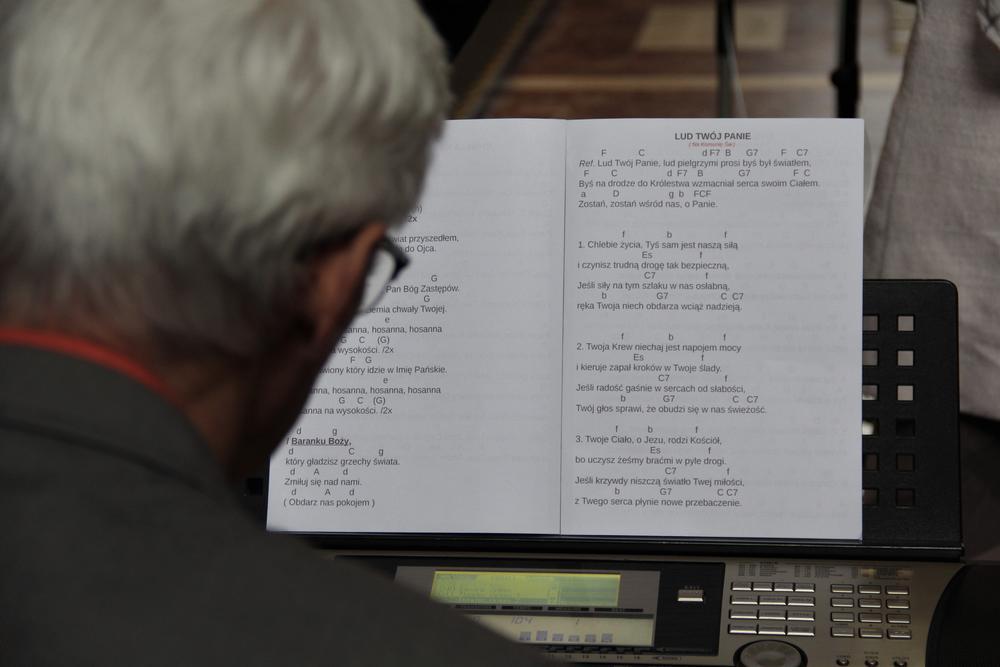 2x
wiat przyszedłem,
do Ojca.
G
Pan Bóg Zastępów.
G
iemia chwały Twojej.
e
anna, hosanna, hosanna
G C (G)
wysokości. /2x
F G
wiony który idzie w Imię Pańskie.
e
nna, hosanna, hosanna, hosanna
G C (G)
anna na wysokości. /2x
d g
Baranku Boży,
d C g
który gładzisz grzechy świata.
d A d
Zmiłuj się nad nami.
d A d
( Obdarz nas pokojem )
LUD TWÓJ PANIE
( Na Komunię Św.)
F C d F7 B G7 F C7
Ref. Lud Twój Panie, lud pielgrzymi prosi byś był światłem,
F C d F7 B G7 F C
Byś na drodze do Królestwa wzmacniał serca swoim Ciałem.
a D g b FCF
Zostań, zostań wśród nas, o Panie.
f b f
1. Chlebie życia, Tyś sam jest naszą siłą
Es f
i czynisz trudną drogę tak bezpieczną,
C7 f
Jeśli siły na tym szlaku w nas osłabną,
b G7 C C7
ręka Twoja niech obdarza wciąż nadzieją.
f b f
2. Twoja Krew niechaj jest napojem mocy
Es f
i kieruje zapał kroków w Twoje ślady.
C7 f
Jeśli radość gaśnie w sercach od słabości,
b G7 C C7
Twój głos sprawi, że obudzi się w nas świeżość.
f b f
3. Twoje Ciało, o Jezu, rodzi Kościół,
Es f
bo uczysz żeśmy braćmi w pyle drogi.
C7 f
Jeśli krzywdy niszczą światło Twej miłości,
b G7 C C7
z Twego serca płynie nowe przebaczenie.
104 1